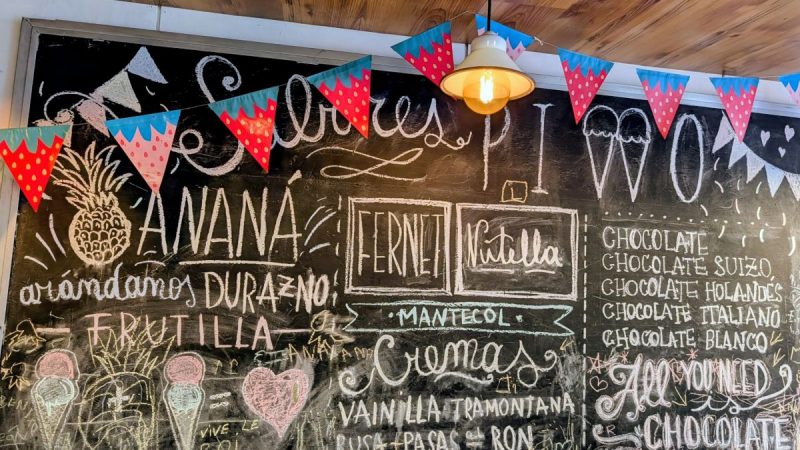 Sabores PIWO
ANANÁ
arándanos DURAZNO
FRUTILLA
VIVE LE
FERNET Nutella
MANTECOL
Cremas
VAINILLA TRAMONTANA
RUSA PASAS RON
CHOCOLATE
CHOCOLATE SUIZO,
CHOCOLATE HOLANDÉS
CHOCOLATE ITALIANO
CHOCOLATE BLANCO
All YOU NEED
is
CHOCOLATE